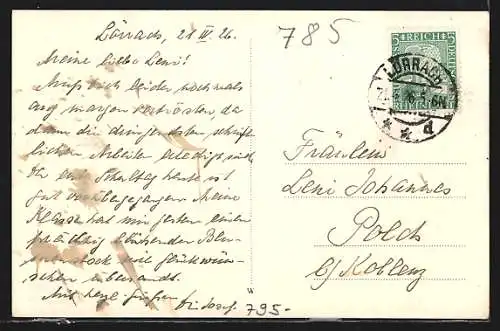 Lörrach, 21 IV. 26.
Meine liebe Leni!
Muß dich leider nochmals
auf morgen vertrösten, da
dann die dringendsten schrift-
lichen Arbeiten erledigt sind.
heute ist
gut vorübergegangen. Meine
Klasse hat mir gestern einen
prächtig blühenden Blu-
menstock mit Glückwün-
schen übersandt.
Mit herzl. Grüßen
785
795-
DEUTSCHES REICH
5
5
LÖRRACH
Fräulein
Leni Johannes
Polch
b/ Koblenz
W